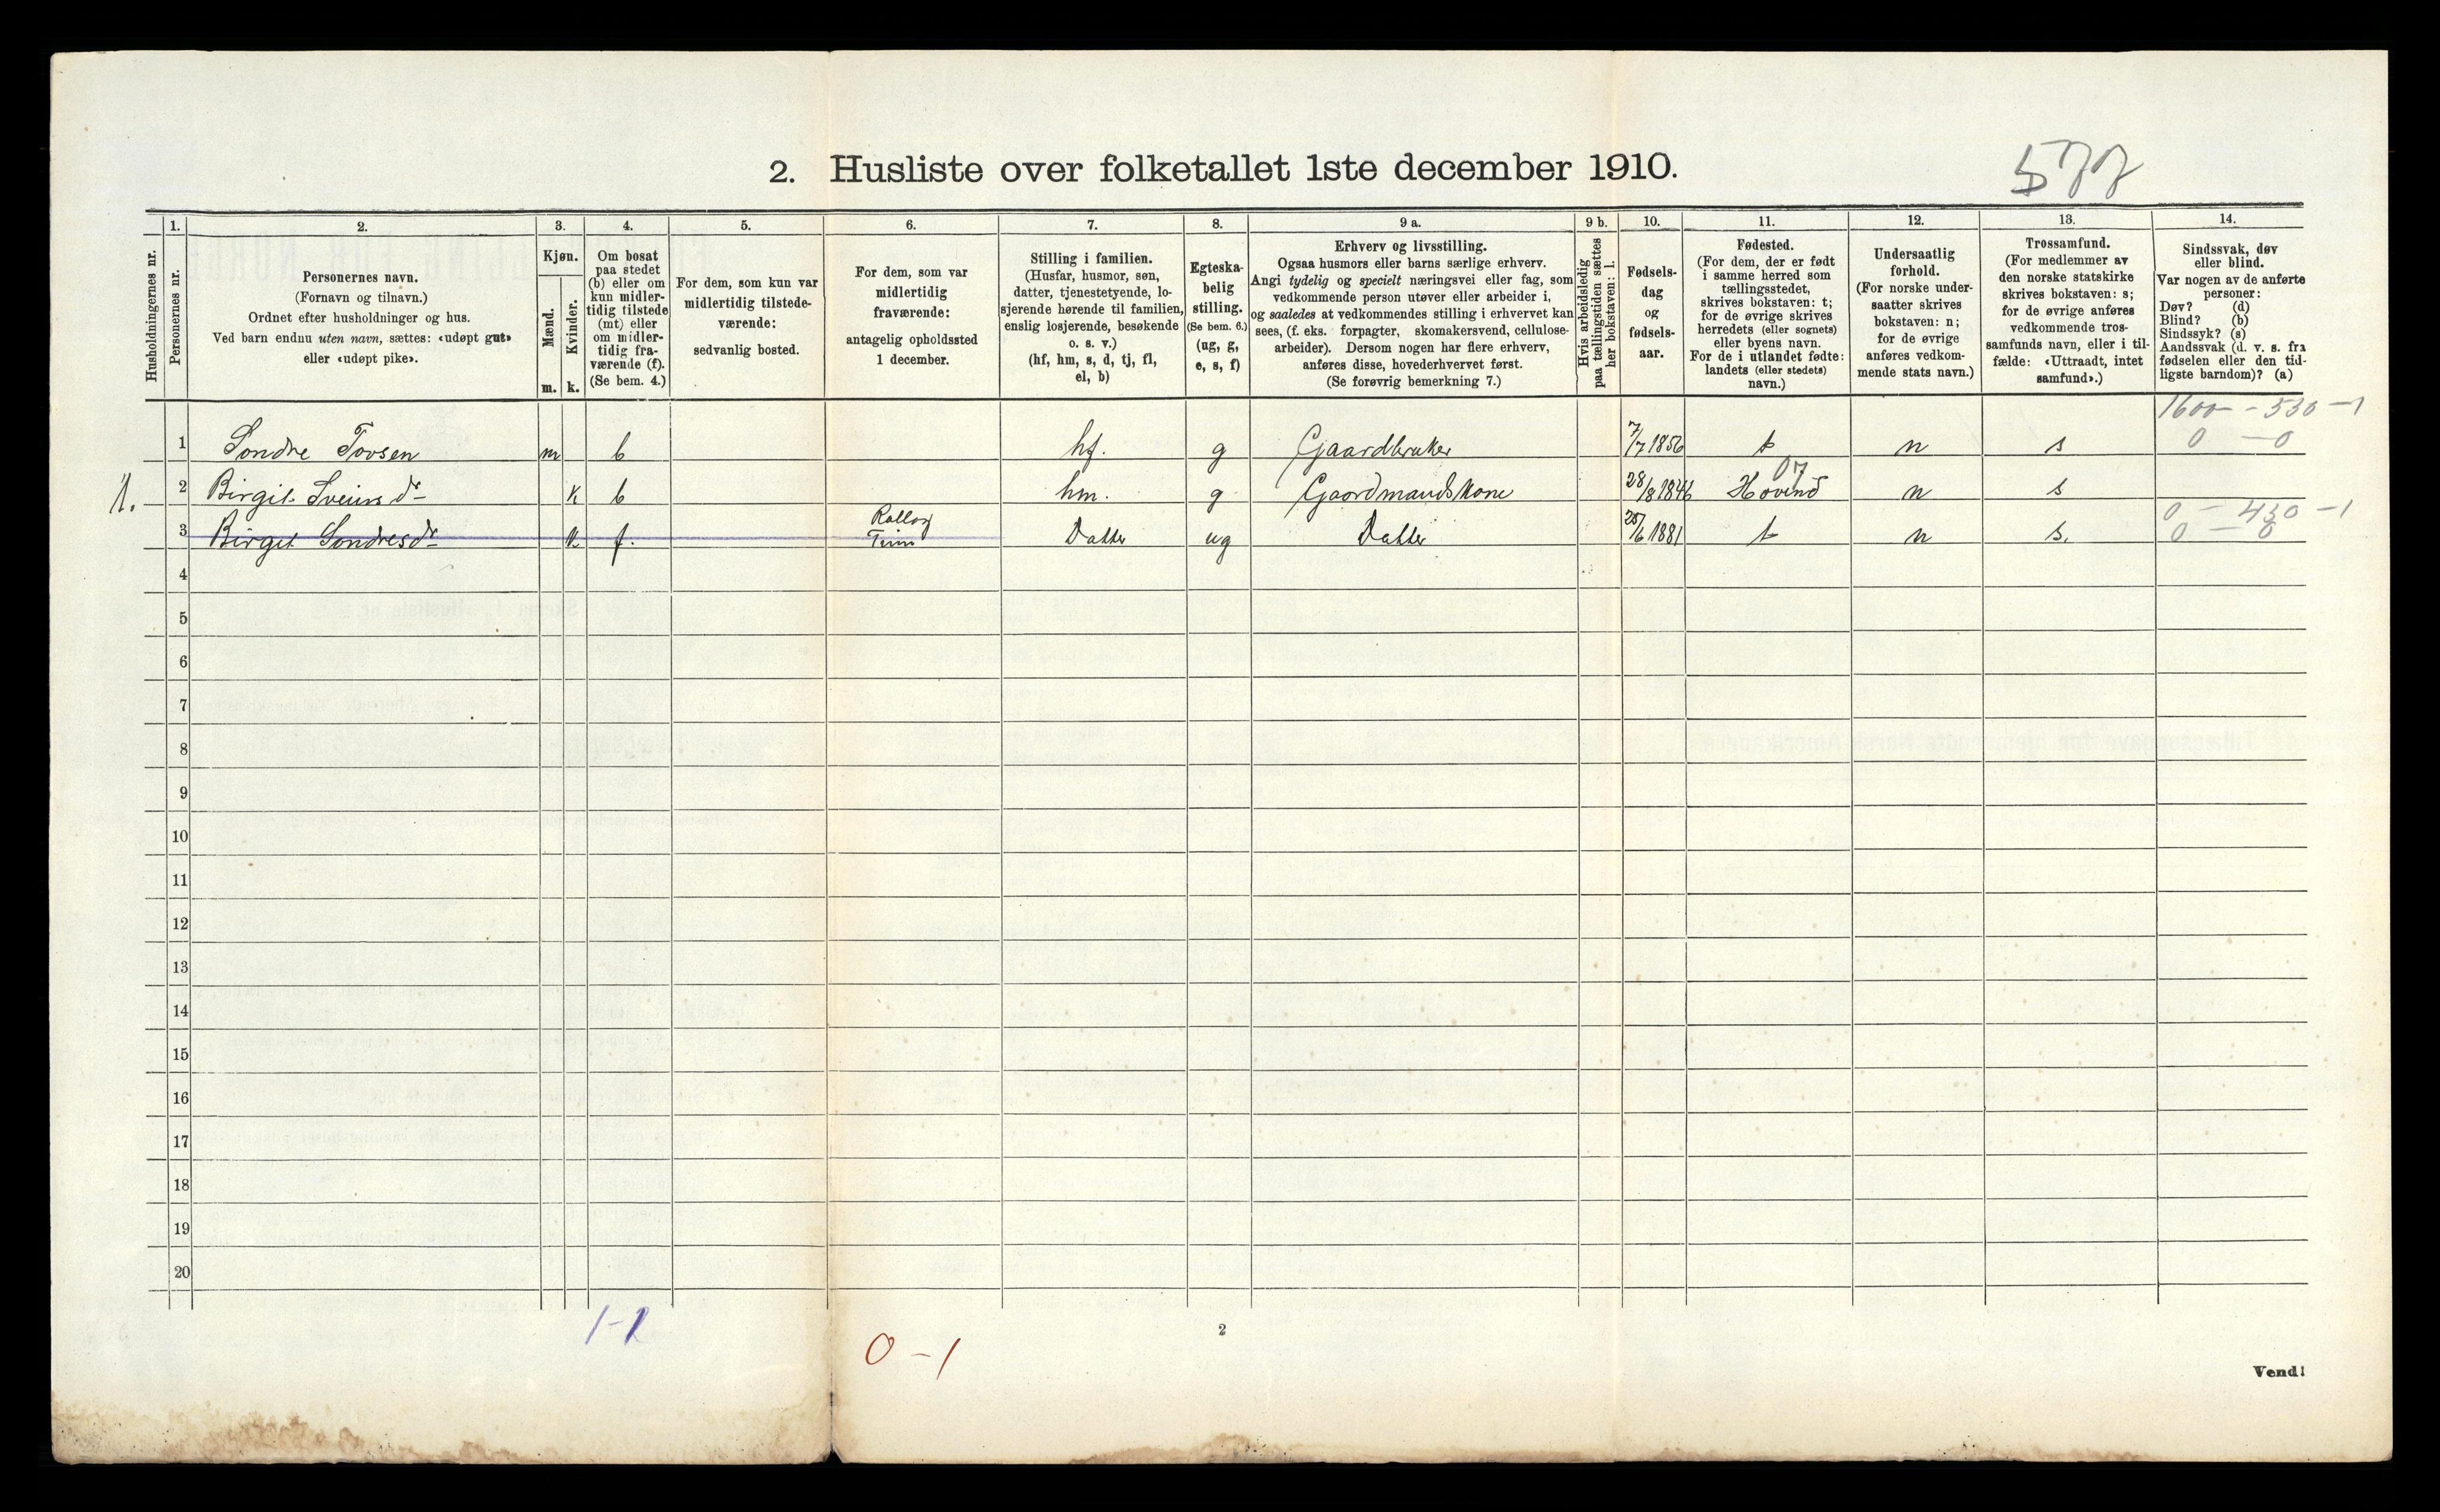 577
2. Husliste over folketallet 1ste december 1910.
Husholdningernes nr.
1.
Personernes nr.
2.
Personernes navn.
(Fornavn og tilnavn.)
Ordnet efter husholdninger og hus.
Ved barn endnu uten navn, sættes: «udøpt gut»
eller «udøpt pike».
3.
Kjøn.
Mænd.
m.
Kvinder.
k.
4.
Om bosat
paa stedet
(b) eller om
kun midler-
tidig tilstede
(mt) eller
om midler-
tidig fra-
værende (f).
(Se bem. 4.)
5.
For dem, som kun var
midlertidig tilstede-
værende:
sedvanlig bosted.
6.
For dem, som var
midlertidig
fraværende:
antagelig opholdssted
1 december.
7.
Stilling i familien.
(Husfar, husmor, søn,
datter, tjenestetyende, lo-
sjerende hørende til familien,
enslig losjerende, besøkende
o. s. v.)
(hf, hm, s, d, tj, fl,
el, b)
8.
Egteska-
belig
stilling.
(Se bem. 6.)
(ug, g,
e, s, f)
9 a.
Erhverv og livsstilling.
Ogsaa husmors eller barns særlige erhverv.
Angi tydelig og specielt næringsvei eller fag, som
vedkommende person utøver eller arbeider i,
og saaledes at vedkommendes stilling i erhvervet kan
sees, (f. eks. forpagter, skomakersvend, cellulose-
arbeider). Dersom nogen har flere erhverv,
anføres disse, hovederhvervet først.
(Se forøvrig bemerkning 7.)
9 b.
Hvis arbeidsledig
paa tællingstiden sættes
her bokstaven: l.
10.
Fødsels-
dag
og
fødsels-
aar.
11.
Fødested.
(For dem, der er født
i samme herred som
tællingsstedet,
skrives bokstaven: t;
for de øvrige skrives
herredets (eller sognets)
eller byens navn.
For de i utlandet fødte:
landets (eller stedets)
navn.)
12.
Undersaatlig
forhold.
(For norske under-
saatter skrives
bokstaven: n;
for de øvrige
anføres vedkom-
mende stats navn.)
13.
Trossamfund.
(For medlemmer av
den norske statskirke
skrives bokstaven: s;
for de øvrige anføres
vedkommende tros-
samfunds navn, eller i til-
fælde: «Uttraadt, intet
samfund».)
14.
Sindssvak, døv
eller blind.
Var nogen av de anførte
personer:
Døv? (d)
Blind? (b)
Sindssyk? (s)
Aandssvak (d. v. s. fra
fødselen eller den tid-
ligste barndom)? (a)
1600 - 530 - 1
1 Sondre Tovsen m b hf. g Gaardbruker 7/7 1856 t n s 0 - 0
07
1. 2 Birgit Sveins dr k b hm. g Gaardmandskone 28/8 1846 Hovind n s
0 - 430 - 1
3 Birgit Sondresdr k f. Tinn Datter ug Datter 25/6 1881 t n s. 0 - 0
4
5
6
7
8
9
10
11
12
13
14
15
16
17
18
19
20
1-1
0 - 1
2
Vend!